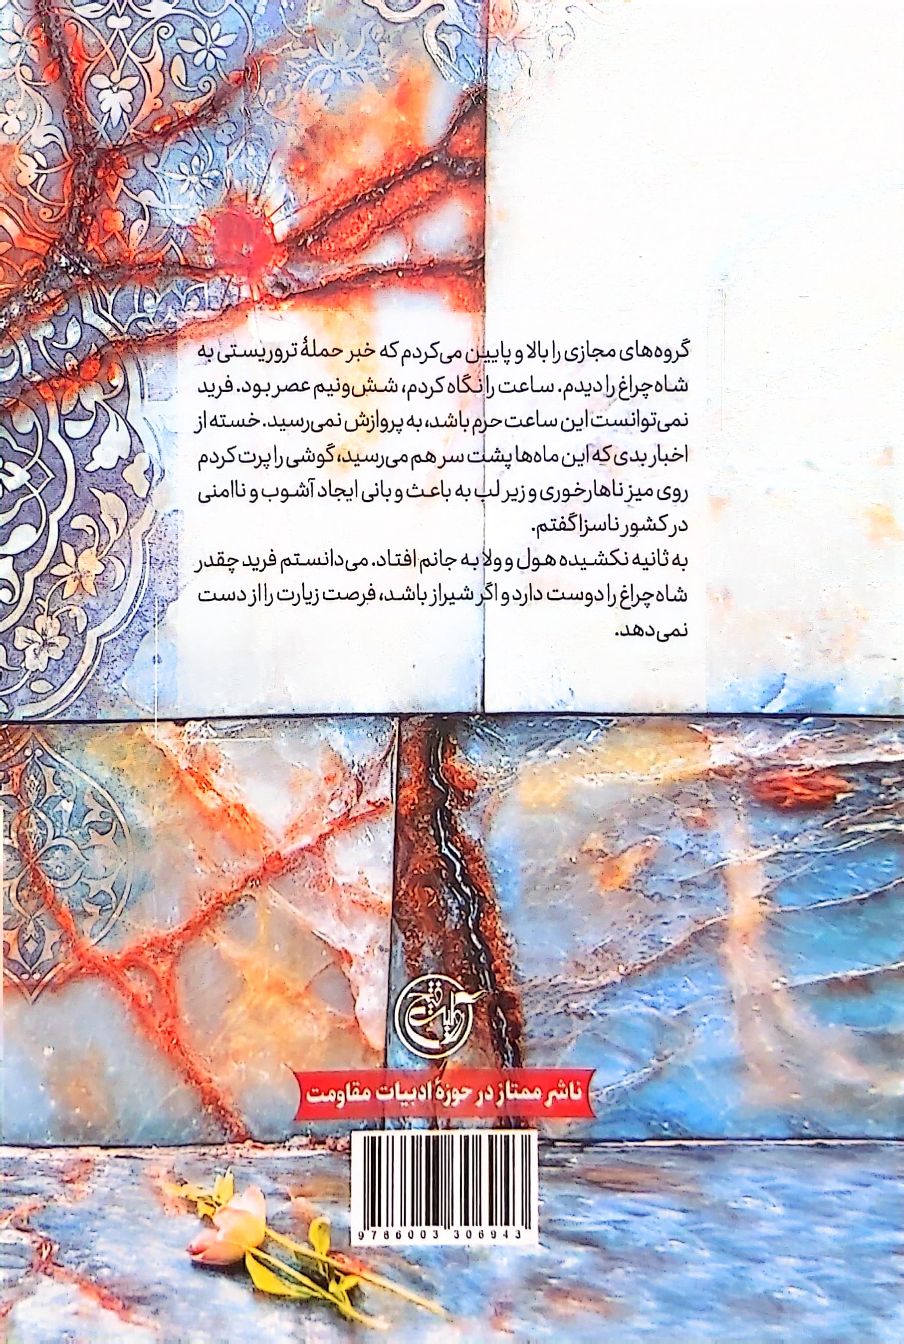 گروه‌های مجازی را بالا و پایین می‌کردم که خبر حملهٔ تروریستی به
شاه‌چراغ را دیدم. ساعت را نگاه کردم، شش‌ونیم عصر بود. فرید
نمی‌توانست این ساعت حرم باشد، به پروازش نمی‌رسید. خسته از
اخبار بدی که این ماه‌ها پشت سر هم می‌رسید، گوشی را پرت کردم
روی میز ناهارخوری و زیر لب به باعث و بانی ایجاد آشوب و ناامنی
در کشور ناسزا گفتم.
به ثانیه نکشیده هول و ولا به جانم افتاد. می‌دانستم فرید چقدر
شاه‌چراغ را دوست دارد و اگر شیراز باشد، فرصت زیارت را از دست
نمی‌دهد.
ناشر ممتاز در حوزهٔ ادبیات مقاومت
9786003306943